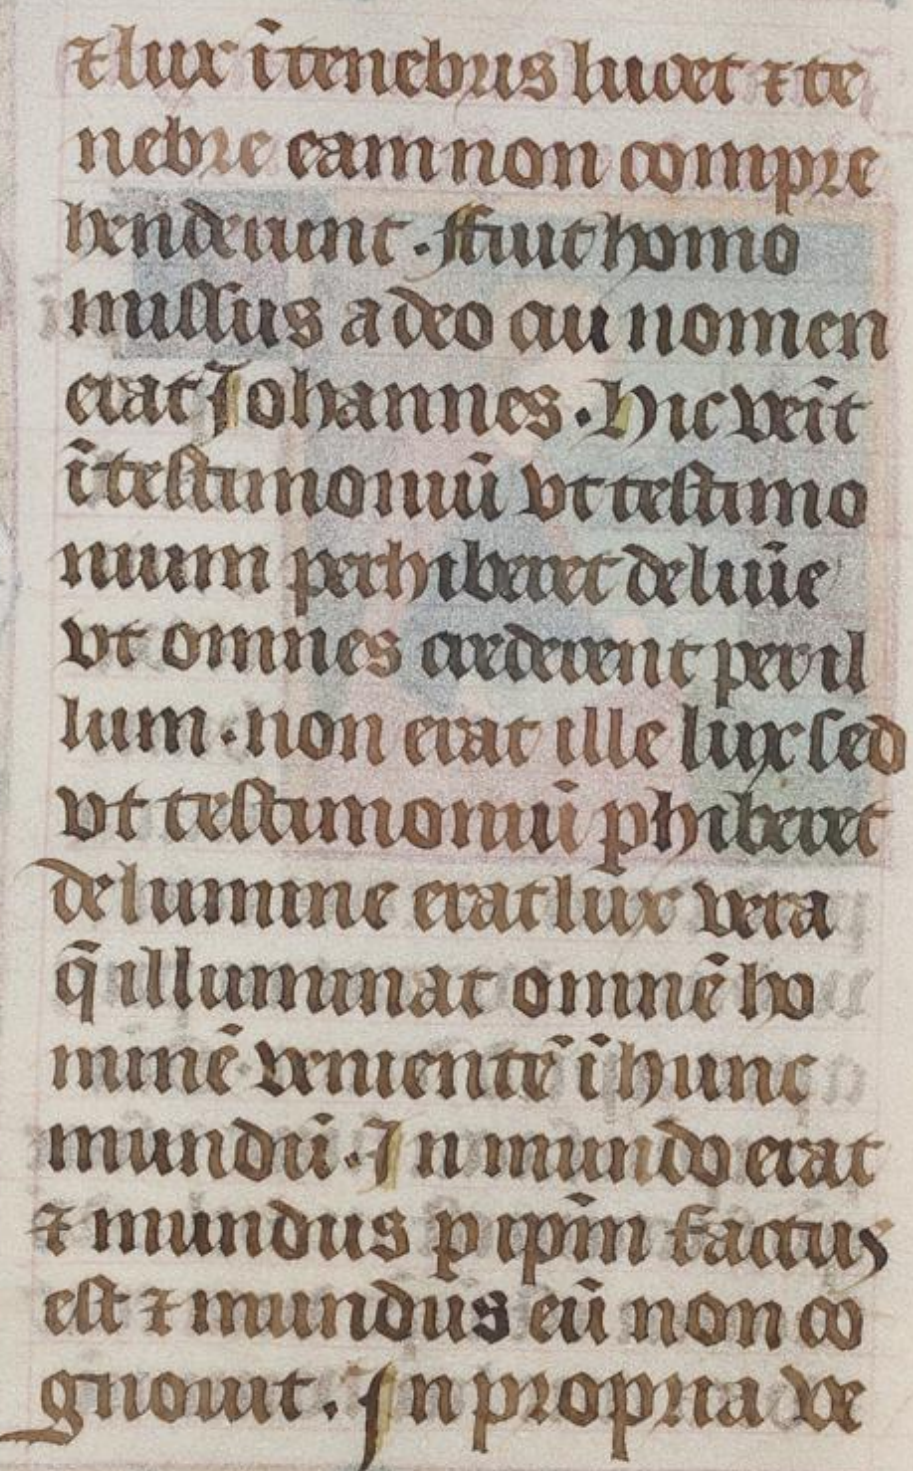 ⁊ lux ī tenebris lucet ⁊ te
nebre eam non compre
henderunt . ffuit homo
missus a deo cui nomen
erat Johannes . Hic veīt
ī testimoniū vt testimo
nium perhiberet de luīe
vt omnes crederent per il
lum . non erat ille lux sed
vt testimoniū ꝑhiberet
de lumine erat lux vera
q̄ illuminat omnē ho
minē venientē ī hunc
mundū . In mundo erat
⁊ mundus ꝑ ipm̄ factus
est ⁊ mundus eū non co
gnouit . In propria ve